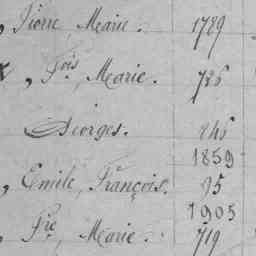 , Pierre, Marie. 1789
, Fois, Marie. 786
Georges. 846
1859
, Emile, François. 95
1905
, Pre, Marie. 719